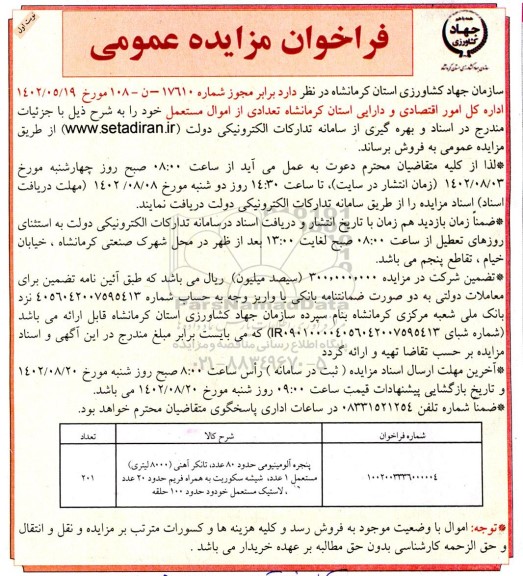 نوبت اول
جهاد کشاورزی
فراخوان مزایده عمومی
سازمان جهاد کشاورزی استان کرمانشاه در نظر دارد برابر مجوز شماره ۱۷۶۱۰–ن – ۱۰۸ مورخ ۱۴۰۲/۰۵/۱۹
اداره کل امور اقتصادی و دارایی استان کرمانشاه تعدادی از اموال مستعمل خود را به شرح ذیل با جزئیات
مندرج در اسناد و بهره گیری از سامانه تدارکات الکترونیکی دولت (www.setadiran.ir) از طریق
مزایده عمومی به فروش برساند.
*لذا از کلیه متقاضیان محترم دعوت به عمل می آید از ساعت ۰۸:۰۰ صبح روز چهارشنبه مورخ
۱۴۰۲/۰۸/۰۳ (زمان انتشار در سایت)، تا ساعت ۱۴:۳۰ روز دو شنبه مورخ ۱۴۰۲/۰۸/۰۸ (مهلت دریافت
اسناد) اسناد مزایده را از طریق سامانه تدارکات الکترونیکی دولت دریافت نمایند.
*ضمناً زمان بازدید هم زمان با تاریخ انتشار و دریافت اسناد درسامانه تدارکات الکترونیکی دولت به استثنای
روزهای تعطیل از ساعت ۰۸:۰۰ صبح لغایت ۱۳:۰۰ بعد از ظهر در محل شهرک صنعتی کرمانشاه ، خیابان
خیام ، تقاطع پنجم می باشد.
*تضمین شرکت در مزایده ۳۰۰۰۰۰۰,۰۰۰ (سیصد میلیون) ریال می باشد که طبق آئین نامه تضمین برای
معاملات دولتی به دو صورت ضمانتنامه بانکی یا واریز وجه به حساب شماره ۴۰۵۶۰۴۲۰۰۷۵۹۵۴۱۳ نزد
بانک ملی شعبه مرکزی کرمانشاه بنام سپرده سازمان جهاد کشاورزی استان کرمانشاه قابل ارائه می باشد
(شماره شبای IR۰۹۰۱۰۰۰۰۴۰۵۶۰۴۲۰۰۷۵۹۵۴۱۳) که می بایست برابر مبلغ مندرج در این آگهی و اسناد
مزایده بر حسب تقاضا تهیه و ارائه گردد
*آخرین مهلت ارسال اسناد مزایده ( ثبت در سامانه ) رأس ساعت ۸:۰۰ صبح روز شنبه مورخ ۱۴۰۲/۰۸/۲۰
و تاریخ بازگشایی پیشنهادات قیمت ساعت ۰۹:۰۰ روز شنبه مورخ ۱۴۰۲/۰۸/۲۰ می باشد.
*ضمنا شماره تلفن ۰۸۳۳۱۵۲۱۲۵۴ در ساعات اداری پاسخگوی متقاضیان محترم خواهد بود.
شماره فراخوان شرح کالا تعداد
۱۰۰۲۰۰۳۳۳۶۰۰۰۰۰۴ پنجره آلومینیومی حدود ۸۰ عدد، تانکر آهنی (۸۰۰۰ لیتری) مستعمل ۱ عدد، شیشه سکوریت به همراه فریم حدود ۲۰ عدد ، لاستیک مستعمل خودود حدود ۱۰۰ حلقه ۲۰۱
*توجه: اموال با وضعیت موجود به فروش رسد و کلیه هزینه ها و کسورات مترتب بر مزایده و نقل و انتقال
و حق الزحمه کارشناسی بدون حق مطالبه بر عهده خریدار می باشد .